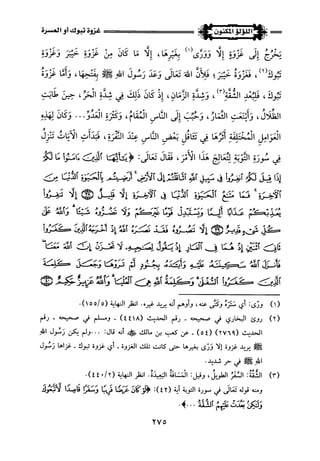 اللؤلؤ المكنون
غزوة تبوك أو العسرة
يَخْرُجُ إِلَى غَزْوَةٍ إِلَّا وَرَّى(١) بِغَيْرِهَا، إِلَّا مَا كَانَ مِنْ غَزْوَةِ خَيْبَرَ وَغَزْوَةِ
تَبُوكَ(٢)، فَغَزْوَةُ خَيْبَرَ؛ فَلِأَنَّ اللهَ تَعَالَى وَعَدَ رَسُولَ اللهِ ﷺ بِفَتْحِهَا، وَأَمَّا غَزْوَةُ
تَبُوكَ، فَلِبُعْدِ الشُّقَّةِ(٣)، وَشِدَّةِ الزَّمَانِ، إِذْ كَانَ ذَلِكَ فِي شِدَّةِ الْحَرِّ، حِينَ طَابَتِ
الظِّلَالُ، وَأَيْنَعَتِ الثِّمَارُ، وَحُبِّبَ إِلَى النَّاسِ الْمُقَامُ، وَكَثْرَةِ الْعَدُوِّ... وَكَانَ لِهَذِهِ
الْعَوَامِلِ الْمُخْتَلِفَةِ أَثَرُهَا فِي تَثَاقُلِ بَعْضِ النَّاسِ عِنْدَ النَّفْرَةِ، فَبَدَأَتِ الْآيَاتُ تَنْزِلُ
فِي سُورَةِ التَّوْبَةِ لِتُعَالِجَ هَذَا الْأَمْرَ، فَقَالَ تَعَالَى: ﴿يَا أَيُّهَا الَّذِينَ آمَنُوا مَا لَكُمْ
إِذَا قِيلَ لَكُمُ انْفِرُوا فِي سَبِيلِ اللَّهِ اثَّاقَلْتُمْ إِلَى الْأَرْضِ أَرَضِيتُمْ بِالْحَيَاةِ الدُّنْيَا مِنَ
الْآخِرَةِ فَمَا مَتَاعُ الْحَيَاةِ الدُّنْيَا فِي الْآخِرَةِ إِلَّا قَلِيلٌ إِلَّا تَنْفِرُوا
يُعَذِّبْكُمْ عَذَابًا أَلِيمًا وَيَسْتَبْدِلْ قَوْمًا غَيْرَكُمْ وَلَا تَضُرُّوهُ شَيْئًا وَاللَّهُ عَلَى
كُلِّ شَيْءٍ قَدِيرٌ إِلَّا تَنْصُرُوهُ فَقَدْ نَصَرَهُ اللَّهُ إِذْ أَخْرَجَهُ الَّذِينَ كَفَرُوا
ثَانِيَ اثْنَيْنِ إِذْ هُمَا فِي الْغَارِ إِذْ يَقُولُ لِصَاحِبِهِ لَا تَحْزَنْ إِنَّ اللَّهَ مَعَنَا
فَأَنْزَلَ اللَّهُ سَكِينَتَهُ عَلَيْهِ وَأَيَّدَهُ بِجُنُودٍ لَمْ تَرَوْهَا وَجَعَلَ كَلِمَةَ
الَّذِينَ كَفَرُوا السُّفْلَى وَكَلِمَةُ اللَّهِ هِيَ الْعُلْيَا وَاللَّهُ عَزِيزٌ حَكِيمٌ
(١) ورّى: أي سَتَرَهُ وكَنَّى عنه، وأوهم أنه يريد غيره. انظر النهاية (١٥٥/٥).
(٢) روى البخاري في صحيحه - رقم الحديث (٤٤١٨) - ومسلم في صحيحه - رقم
الحديث (٢٧٦٩) (٥٤) - عن كعب بن مالك أنه قال: ...ولم يكن رَسُول الله
ﷺ يريد غزوة إلا وَرَّى بغيرها حتى كانت تلك الغزوة - أي غزوة تبوك - غزاها رَسُول
الله ﷺ في حر شديد.
(٣) الشُّقَّةُ: السَّفَرُ الطويلُ، وقيل: الْمَسَافَةُ البَعِيدَةُ. انظر النهاية (٤٤٠/٢).
ومنه قوله تَعَالَى في سورة التوبة آية (٤٢): ﴿لَوْ كَانَ عَرَضًا قَرِيبًا وَسَفَرًا قَاصِدًا لَاتَّبَعُوكَ
وَلَكِنْ بَعُدَتْ عَلَيْهِمُ الشُّقَّةُ﴾...
٢٧٥